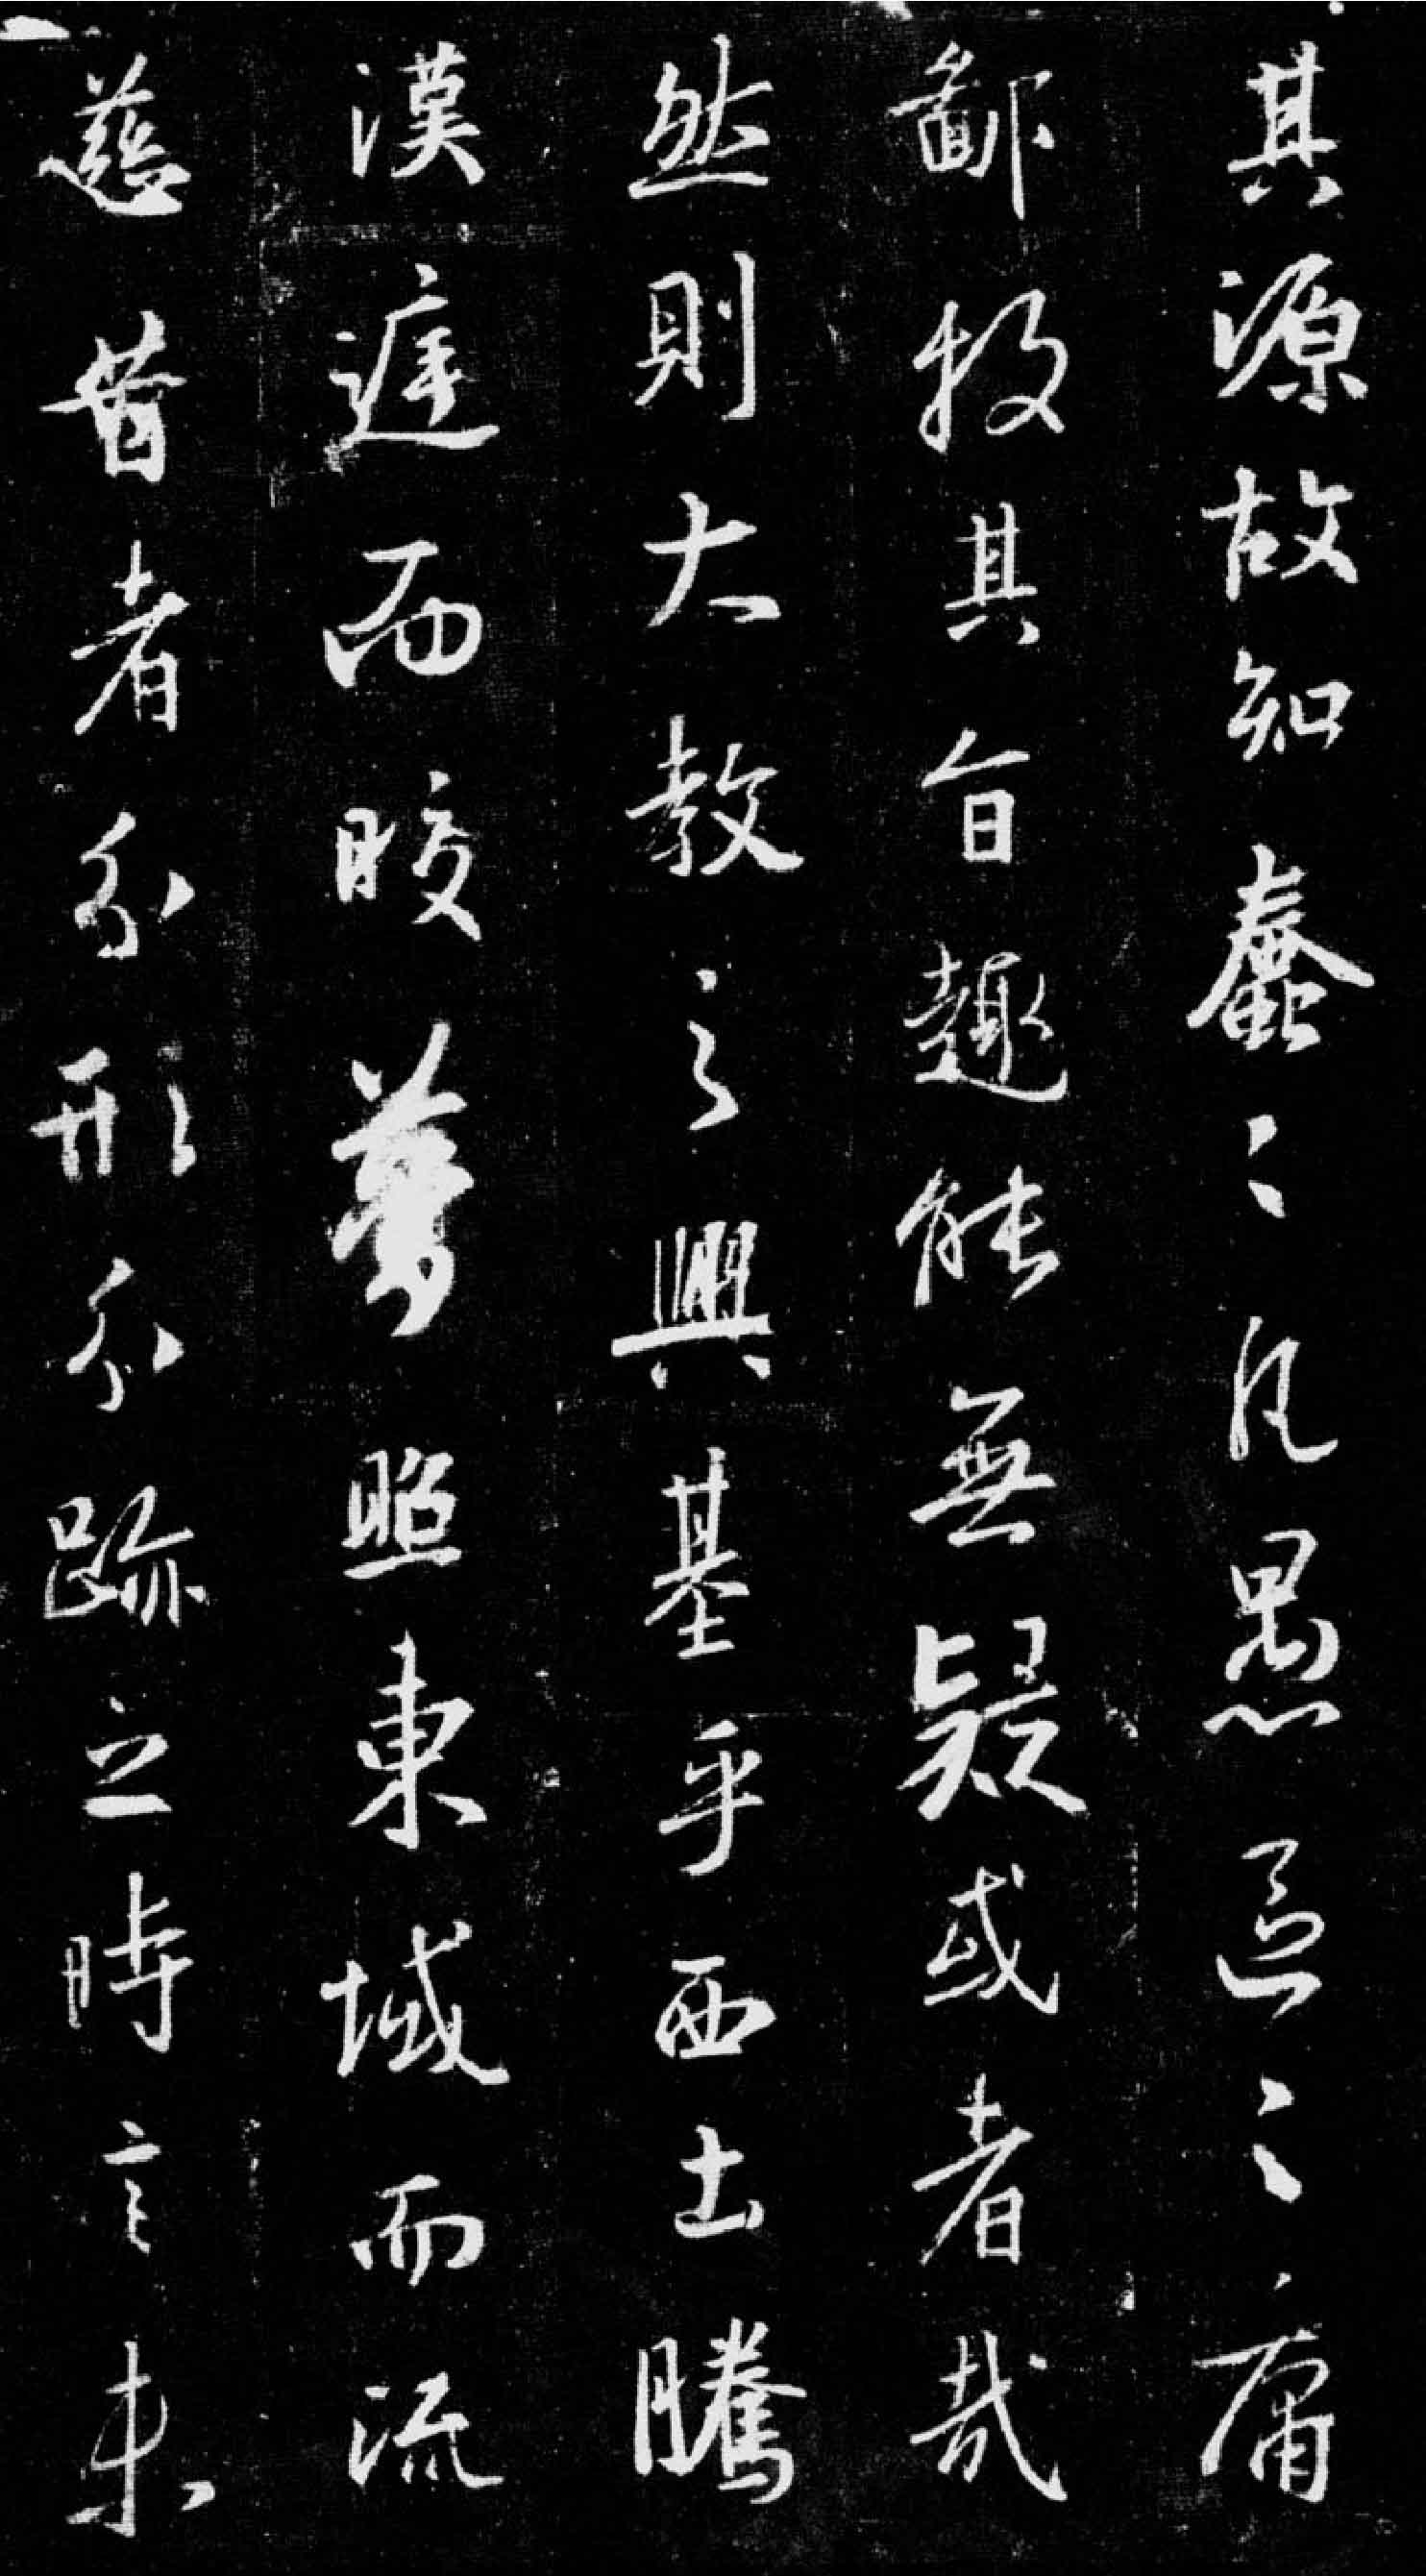 其源故知蠢々凡愚區々庸
鄙投其旨趣能無疑或者哉
然則大教之興基乎西土騰
漢庭而晈夢照東域而流
慈昔者分形分跡之時言未